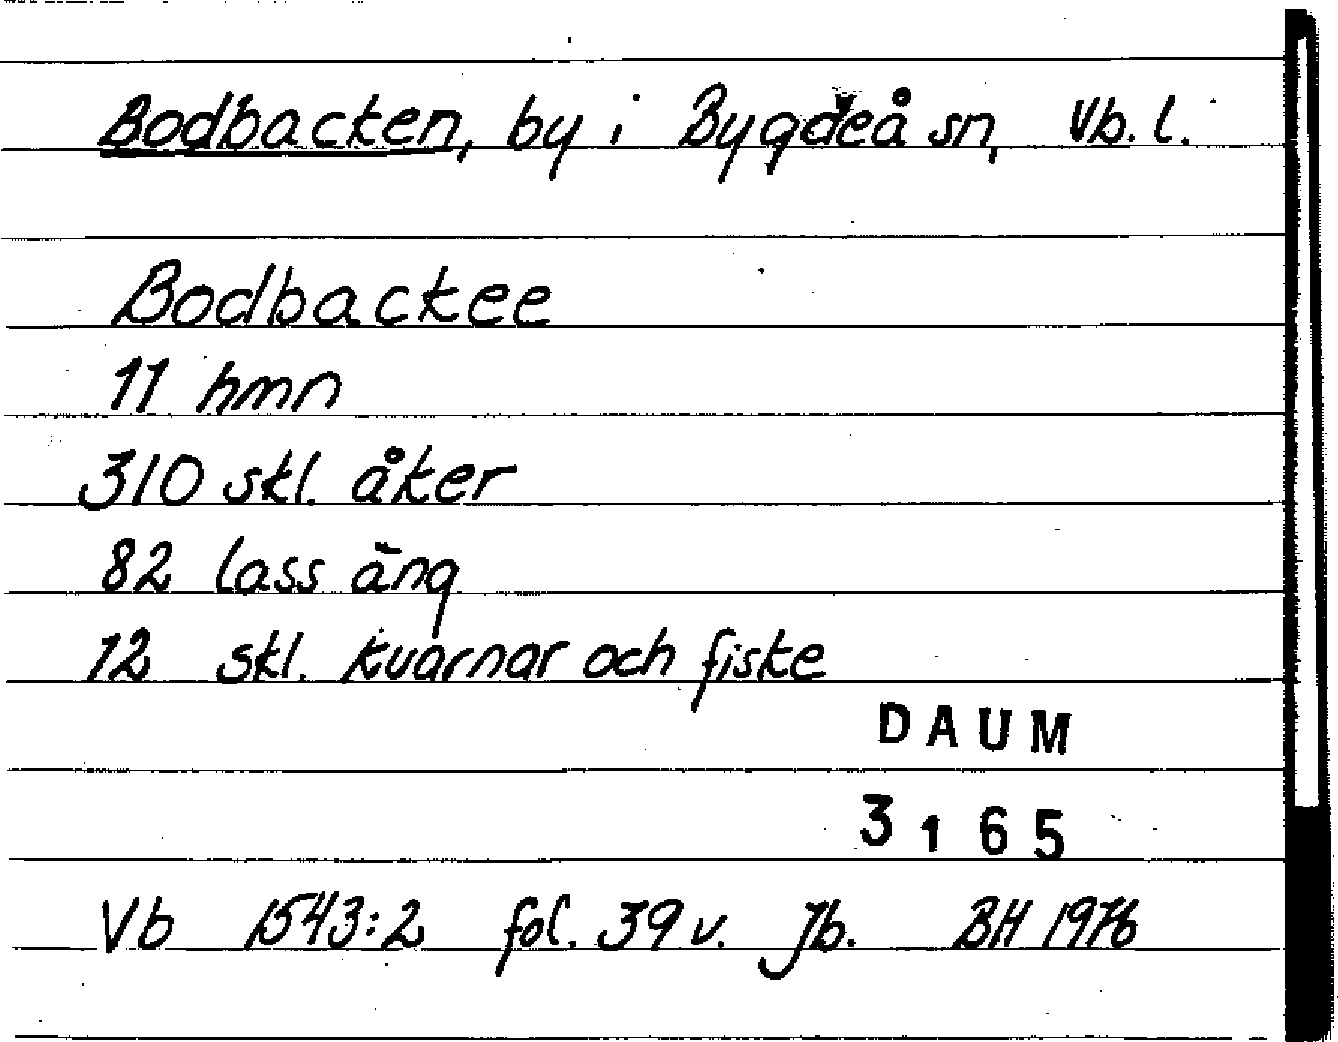 Bodbacken, by i Bygdeå sn, Vb. l.
Bodbackee
11 hmn
310 skl. åker
82 lass äng
12 skl. kvarnar och fiske
DAUM
3165
Vb 1543:2 fol. 39 v. Jb. BH 1976